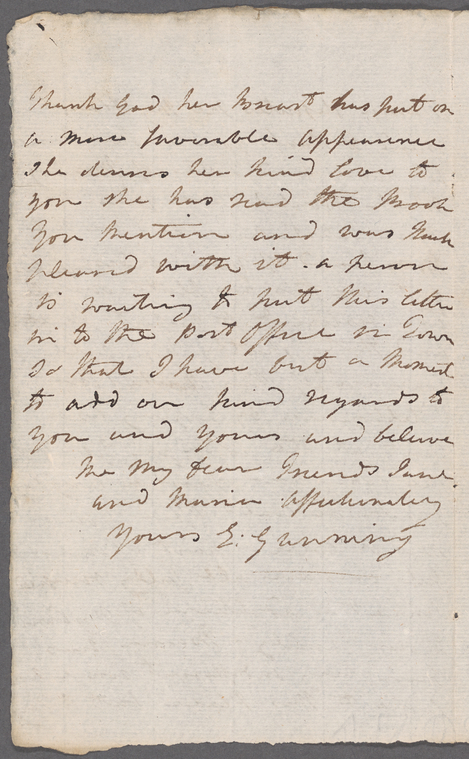 Thank God her Breast has put on
a more favorable appearence
She desires her kind love to
you she has read the Book
you mention and was Much
pleased with it. a person
is waiting to put this letter
in to the Post Office in Town
So that I have but a Moment
to add our kind regards to
you and yours and believe
Me My dear Friends Jane
and Maria affectionately
Yours E: Gunning